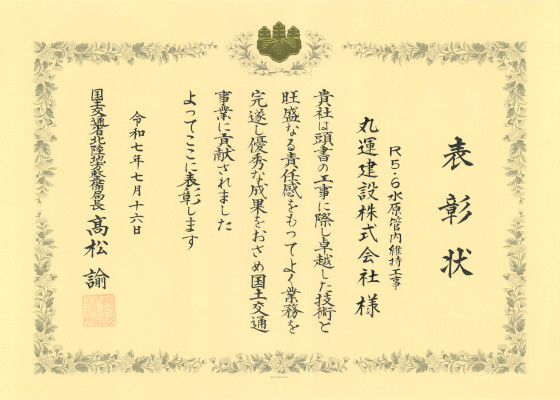 表彰状
R5・6水原管内維持工事
丸運建設株式会社様
貴社は頭書の工事に際し卓越した技術と
旺盛なる責任感をもってよく業務を
完遂し優秀な成果をおさめ国土交通
事業に貢献されました
よってここに表彰します
令和七年七月十六日
国土交通省北陸地方整備局長 髙松諭